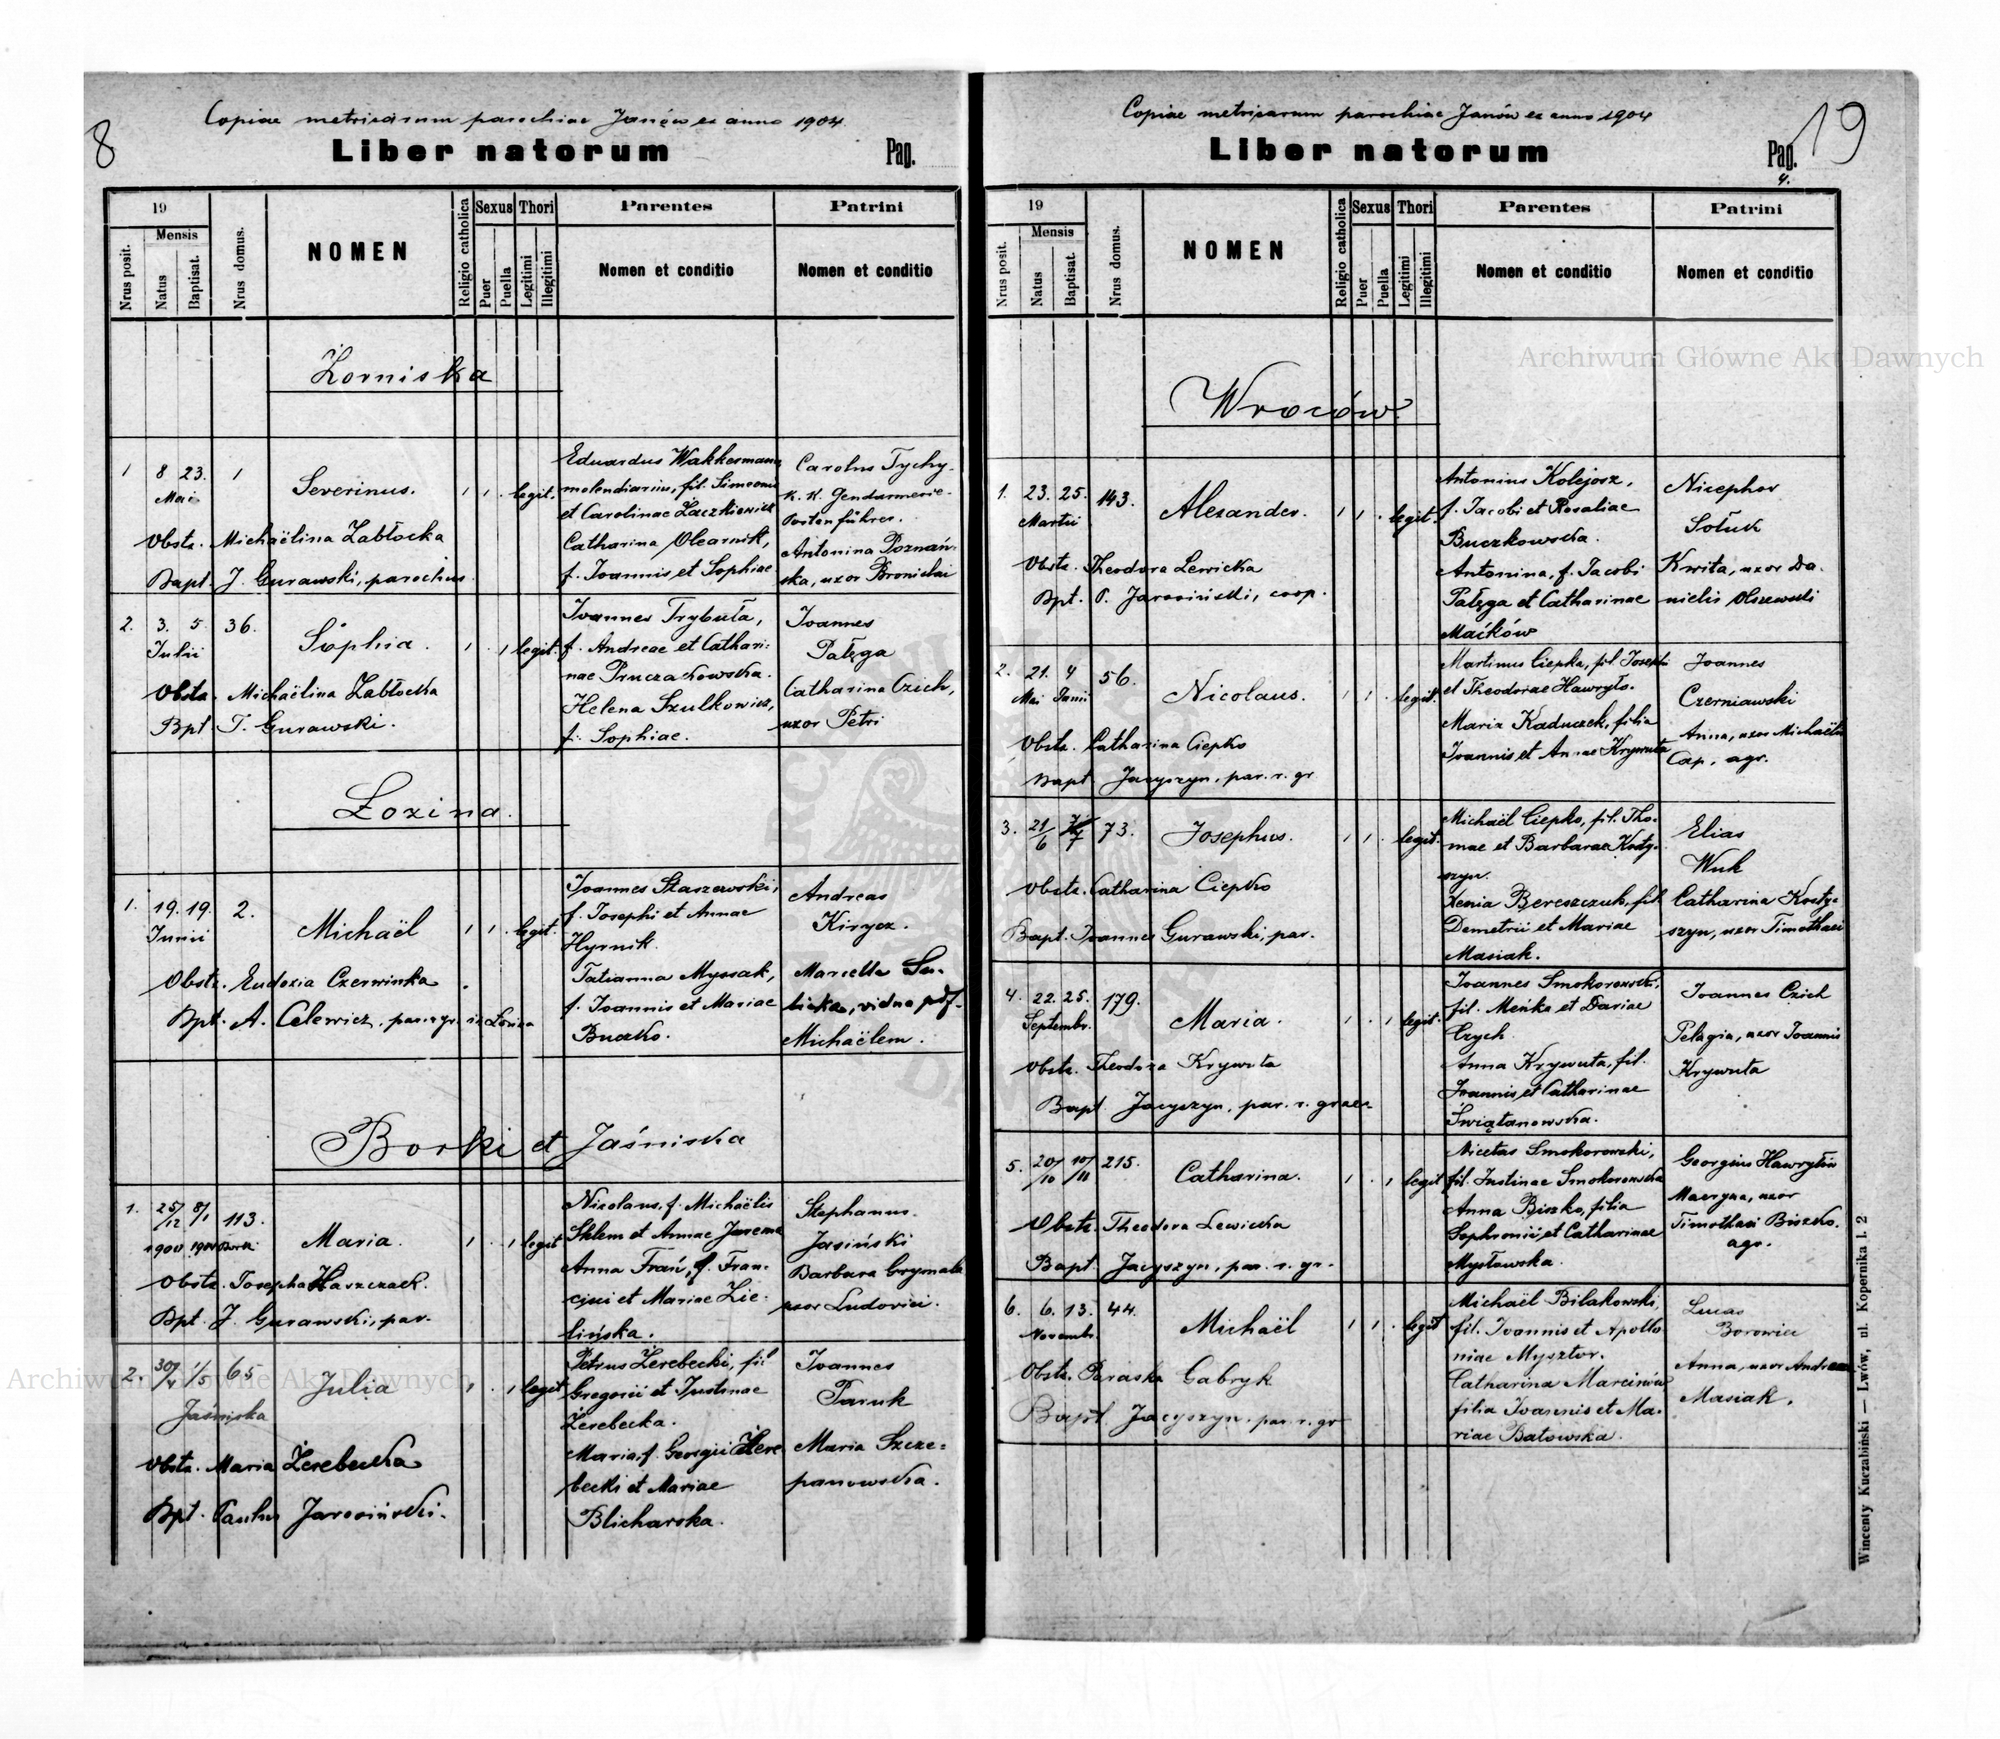 Copiae metricarum parochiae Janów ex anno 1904
8
Liber natorum
Pag.
19
Mensis
Nrus posit.
Natus
Baptisat.
Nrus domus.
NOMEN
Religio catholica
Sexus
Puer
Puella
Thori
Legitimi
Illegitimi
Parentes
Nomen et conditio
Patrini
Nomen et conditio
Żorniska
1 8 23. 1
Mai
Severinus.
1 1 . legit.
Eduardus Wakkermann
molendiarius, fil. Simeonis
et Carolinae Łaczkiewicz
Catharina Olearnik,
f. Joannis et Sophiae
Carolus Tychy
k. k. Gendarmerie-
Postenführer.
Antonina Poznań-
ska, uxor Bronislai
Obstr. Michaëlina Zabłocka
Bapt. J. Gurawski, parochus
2. 3. 5. 36.
Julii
Sophia.
1 . 1 legit.
Joannes Trybuła,
f. Andreae et Cathari:
nae Pruczakowska.
Helena Szulkowicz,
f. Sophiae.
Joannes
Pałęga
Catharina Czich,
uxor Petri
Obstr. Michaëlina Zabłocka
Bpt. J. Gurawski.
Łozina.
1. 19. 19. 2.
Junii
Michaël
1 1 . legit.
Joannes Staszewski,
f. Josephi et Annae
Hyrnik.
Tatianna Myssak,
f. Joannis et Mariae
Buczko.
Andreas
Kirycz.
Marcella Su-
licka, vidua
Michaëlem.
Obstr. Eudoxia Czerwinka
Bpt. A. Celewicz, par. r. gr. in Łozina
Borki et Jaśniska
1. 25/12 8/1 113.
1900 1901 Borki
Maria.
1 . 1 legit
Nicolaus, f. Michaëlis
Sklem et Annae Jarema
Anna Frań, f. Fran-
cisci et Mariae Zie-
lińska.
Stephanus
Jasiński
Barbara Grymała
uxor Ludovici.
Obstr. Josepha Haszczack.
Bpt. J. Gurawski, par.
2. 30/V 1/5 65
Jaśniska
Julia
1 . 1 legit
Petrus Żerebecki, fil
Gregorii et Justinae
Żerebecka.
Maria, f. Georgii Żere
becki et Mariae
Blicharska.
Joannes
Paruk
Maria Szcze=
panowska.
Obstr. Maria Żerebecka
Bpt. Paulus Jarosiński.
Copiae metricarum parochiae Janów ex anno 1904
19
Liber natorum
Pag.
4.
19
Mensis
Nrus posit.
Natus
Baptisat.
Nrus domus.
NOMEN
Religio catholica
Sexus
Puer
Puella
Thori
Legitimi
Illegitimi
Parentes
Nomen et conditio
Patrini
Nomen et conditio
Wroców
1. 23. 25. 143.
Martii
Alexander.
1 1 . legit.
Antonius Kolejosz,
f. Jacobi et Rosaliae
Buczkowska.
Antonina, f. Jacobi
Pałęga et Catharinae
Maćków
Nicephor
Sołuk
Kwita, uxor Da-
nielis Olszewski
Obstr. Theodora Lewicka
Bpt. P. Jarosiński, coop.
2. 21. 4 56.
Mai Junii
Nicolaus.
1 1 . legit.
Martinus Ciepka, fil. Josephi
et Theodorae Hawryło.
Maria Kaduczek, filia
Joannis et Annae Krywuta
Joannes
Czerniawski
Anna, uxor Michaëlis
Cap, agr.
Obstr. Catharina Ciepko
Bapt. Jacyszyn, par. r. gr
3. 21/6 7/7 73.
Josephus.
1 1 . legit.
Michaël Ciepko, fil. Tho-
mae et Barbarae Kosty-
szyn.
Xenia Bereszczuk, fil.
Demetrii et Mariae
Masiak.
Elias
Wuk
Catharina Kosty=
szyn, uxor Timothaei
Obstr. Catharina Ciepko
Bapt. Joannes Gurawski, par.
4. 22. 25. 179.
Septembr.
Maria.
1 . 1 legit.
Joannes Smokorowski,
fil. Meńka et Dariae
Czych.
Anna Krywuta, fil.
Joannis et Catharinae
Świątanowska.
Joannes Czich
Pelagia, uxor Joannis
Krywuta
Obstr. Theodora Krywuta
Bapt. Jacyszyn, par. r. graec
5. 20/10 10/11 215.
Catharina.
1 . 1 legit
Nicetas Smokorowski,
fil. Justinae Smokorowska
Anna Biszko, filia
Sophronii et Catharinae
Mysłowska.
Georgius Hawryłów
Macryna, uxor
Timothaei Biszko.
agr.
Obstr. Theodora Lewicka
Bapt. Jacyszyn, par. r. gr.
6. 6. 13. 44.
Novembr.
Michaël
1 1 . legit
Michaël Bilakowski,
fil. Joannis et Apollo
niae Mysztor.
Catharina Marcinów
filia Joannis et Ma-
riae Batowska.
Lucas
Borowiec
Anna, uxor Andreae
Masiak.
Obstr. Paraska Gabryk
Bapt. Jacyszyn, par. r. gr
Wincenty Kuczabiński — Lwów, ul. Kopernika l. 2
Archiwum Główne Akt Dawnych
Archiwum Główne Akt Dawnych